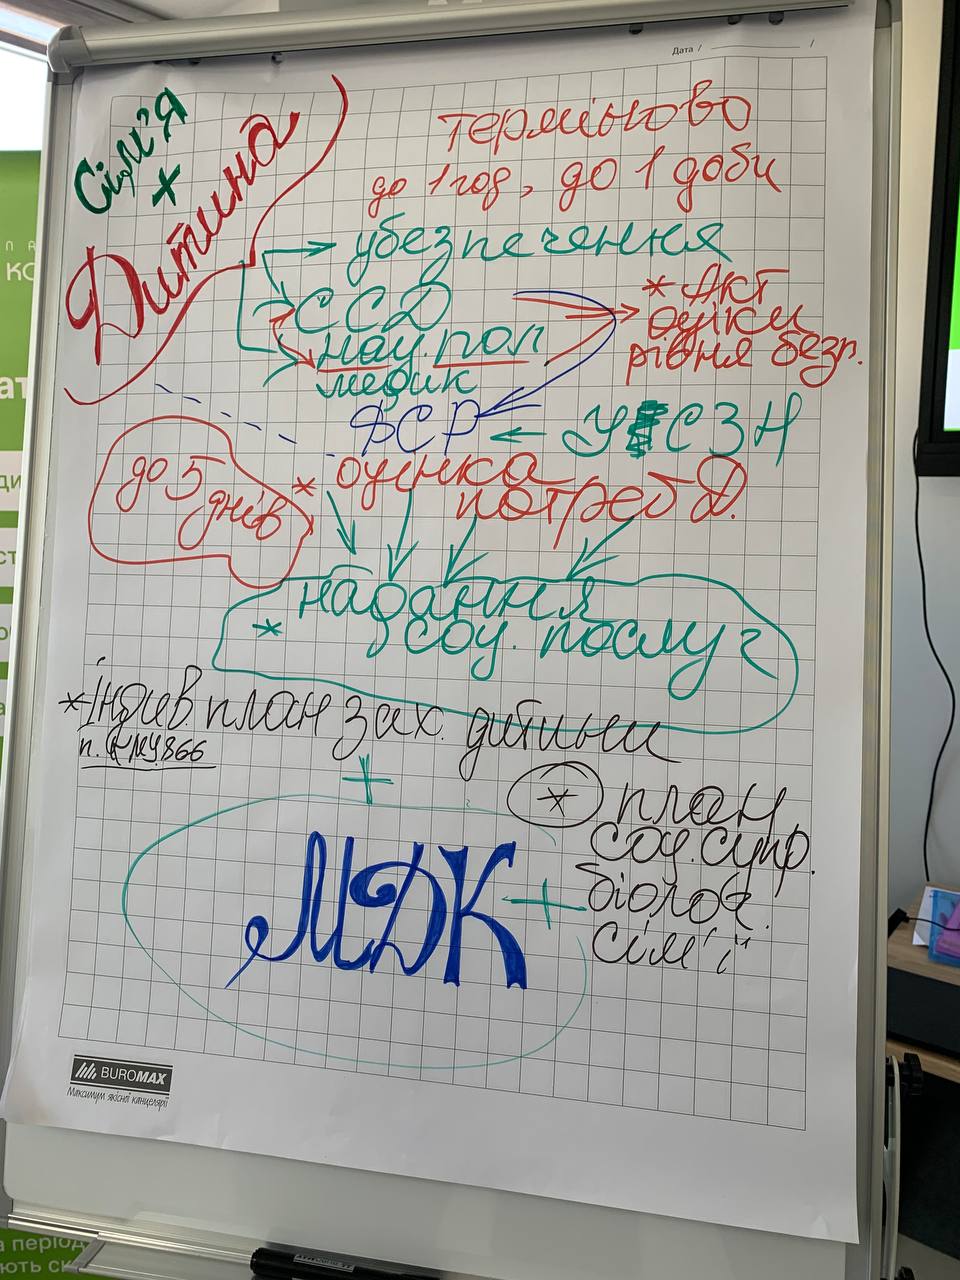 Дата /
Сім'я
*
Дитина
терміново
до 1 год, до 1 доби
убезпечення
ССД
нац. пол
медик
* Акт
оцінки
рівня безп.
ФСР ← УСЗН
до 5
днів
* оцінка
потреб Д.
надання
* соц. послуг
* Індив. план зах. дитини
п. КМУ 866
+
* план
соц. супр.
біолог.
сім'ї
МДК +
BUROMAX
Максимум якісної канцелярії
КО
а період
ють ск